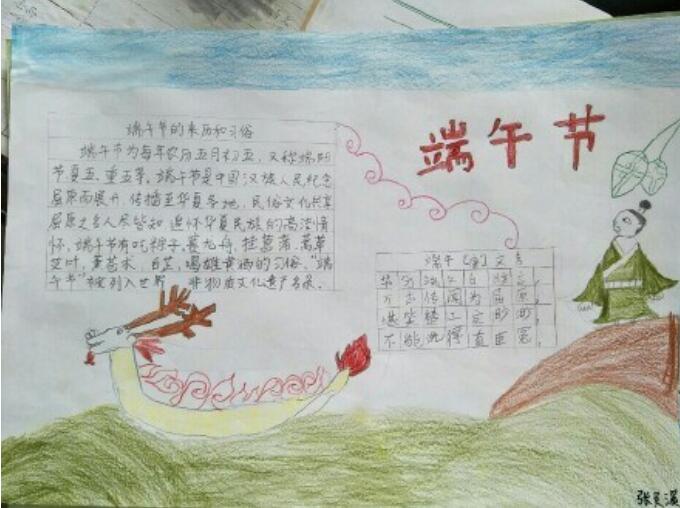 端午节
端午节的来历和习俗
端午节为每年农历五月初五，又称端阳
节夏五、重五等。端午节是中国汉族人民纪念
屈原而展开，传播至华夏各地，民俗文化共享
屈原之名人尽皆知，追怀华夏民族的高洁情
怀。端午节有吃粽子，赛龙舟，挂菖蒲、蒿草
艾叶，薰苍术、白芷，喝雄黄酒的习俗。“端
午节”被列入世界 非物质文化遗产名录。
端午 唐 文秀
节分端午自谁言，
万古传闻为屈原，
堪笑楚江空渺渺，
不能洗得直臣冤，